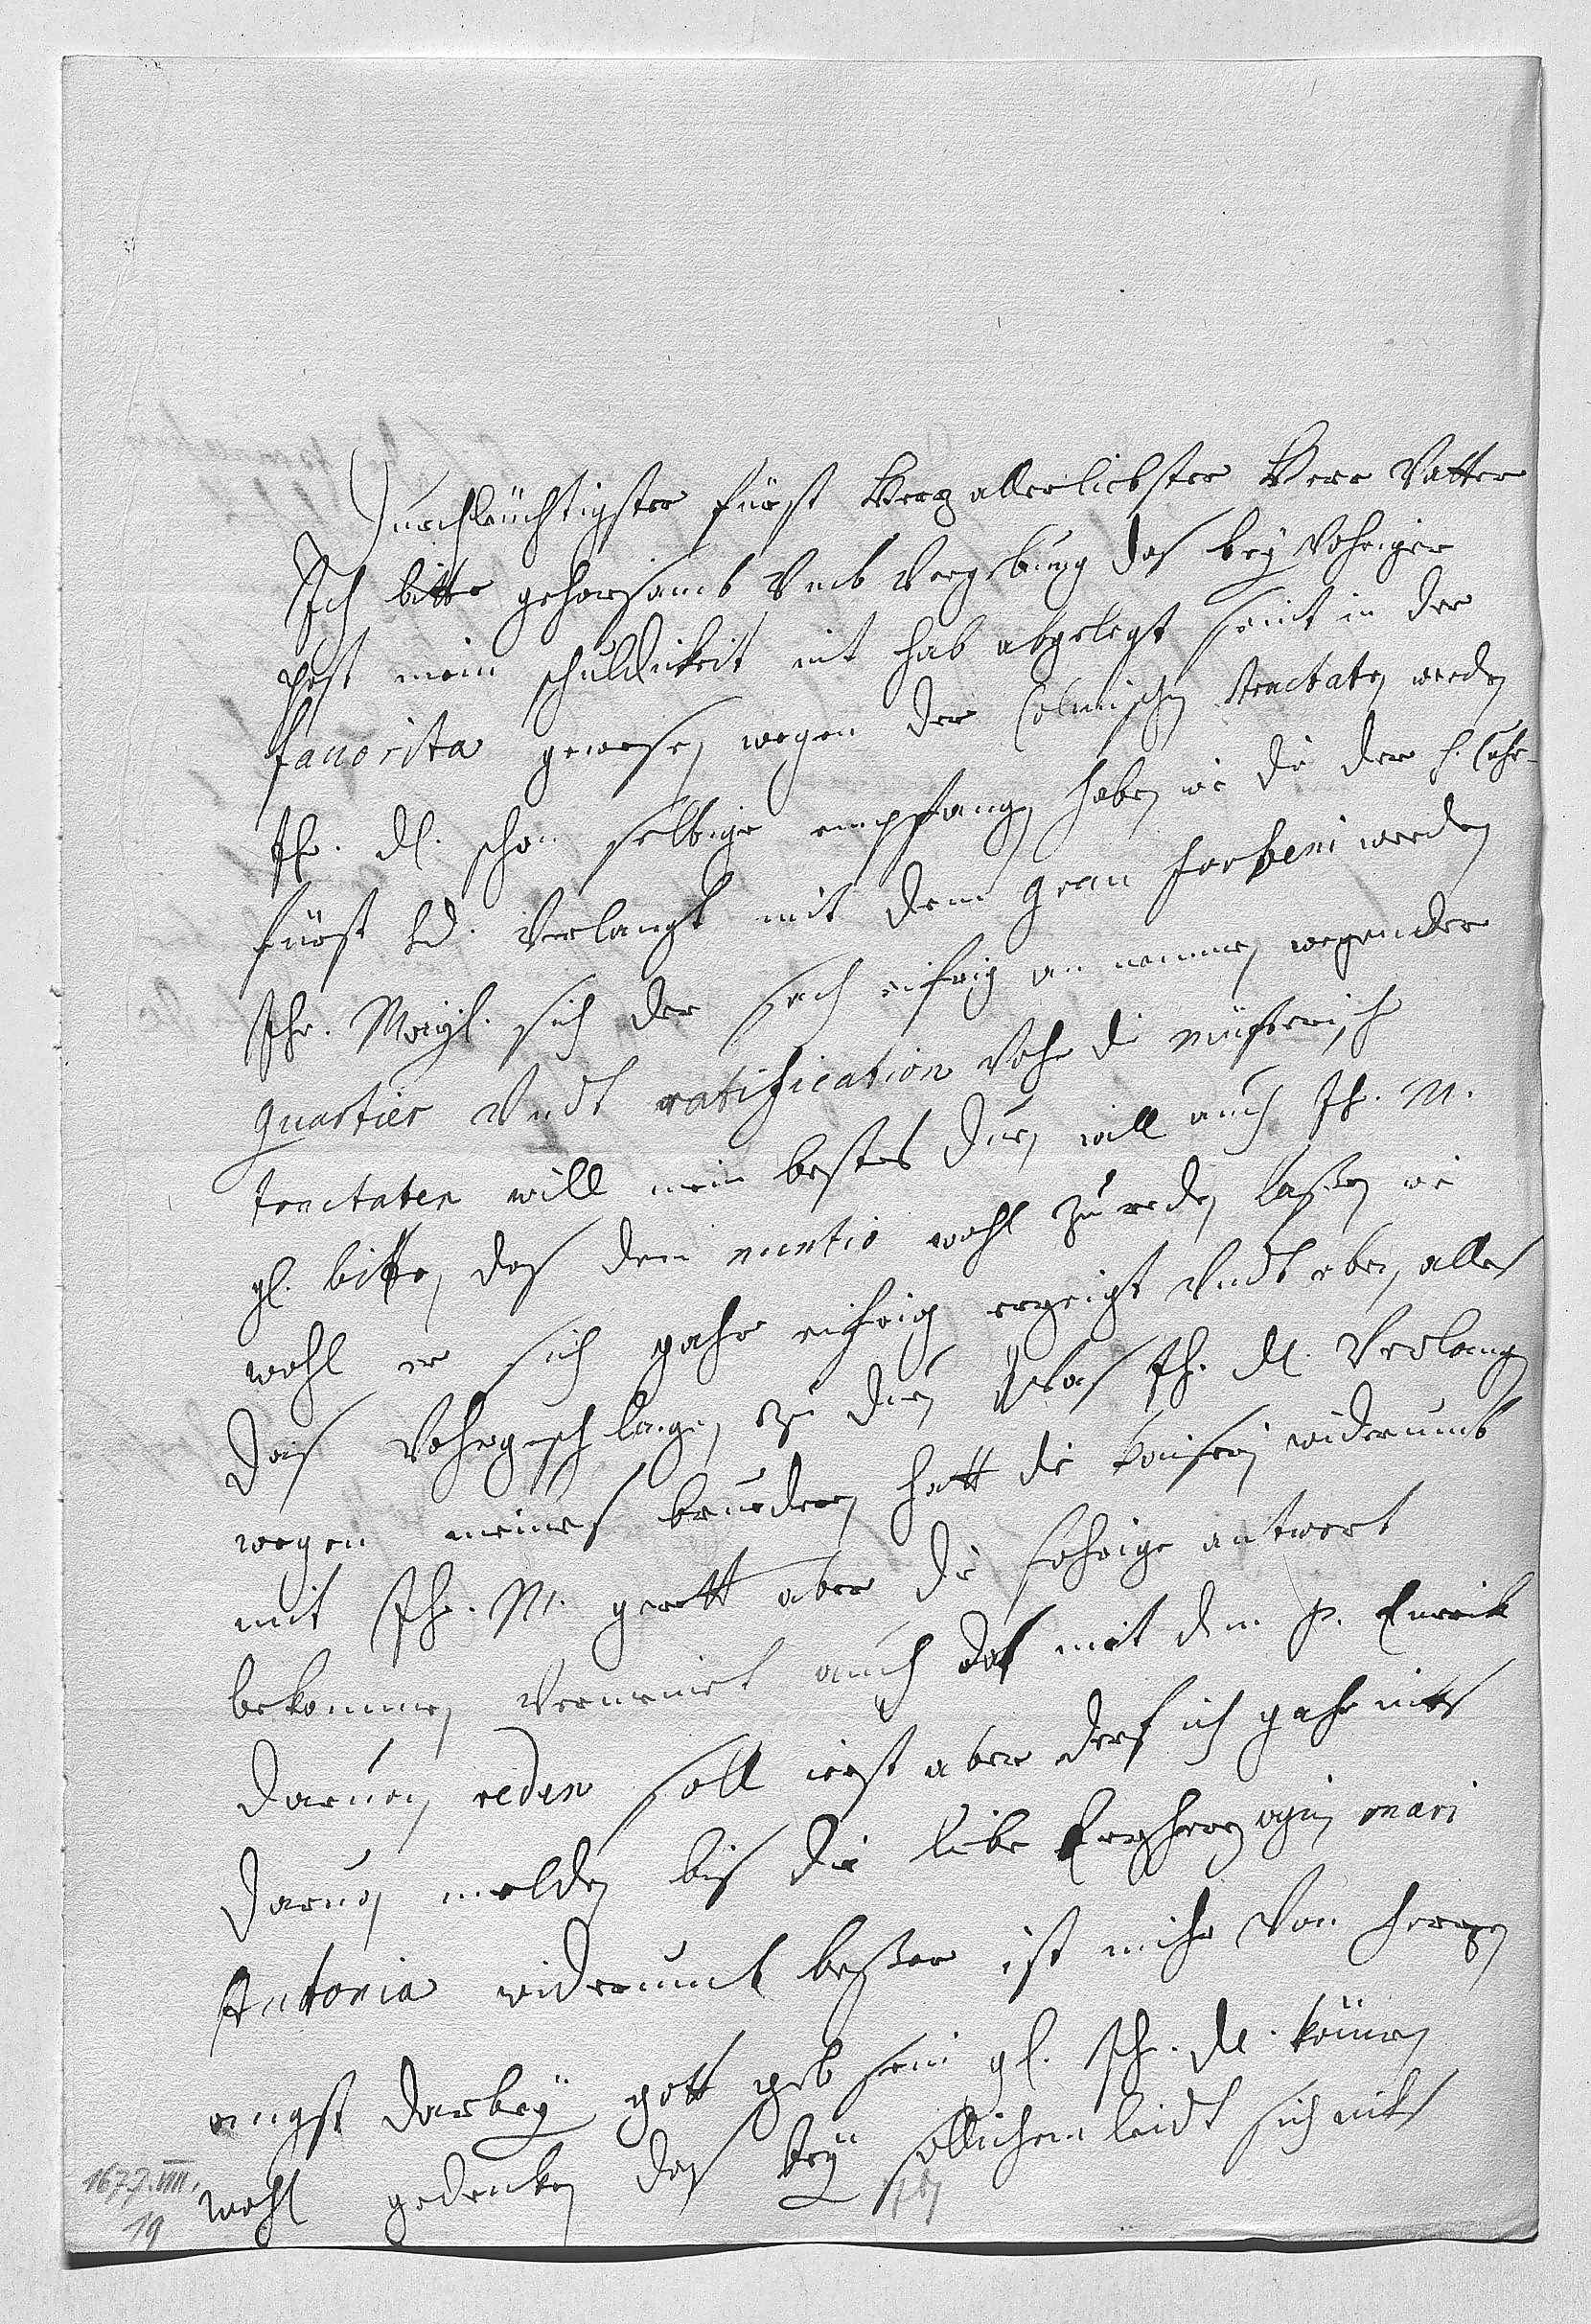 Durchleüchtigster fürst Herz allerliebster Herr Vatter
Ich bitte gehorsamb Vmb Vergebung das bey Vohriger
post mein schuldikeit nit hab abgelegt seint in der
fauorita gewesen wegen der Colnischen tractaten werden
Ihr. Dl. schon selbige empfangen haben wie die der h. Cuhr-
fürst Ld. Verlangt mit dem gran werden
Ihr. Mayl. sich der sach eifrig an nemmen wegen der
quartier Vndt ratification Vohr die münsterisch
tractaten will mein bestes duen will auch Ih. M.
gl. bitten das dem nuntio wohl zu reden lassen wie
wohl er sich gahr eifrig erzeigt Vndt eben alles
das Vohrgeschlagen zu duen was Ih. Dl. Verlangen
wegen meines bruedern hatt die keiserin widerumb
mit Ihr. M. gerett aber die fohrige antwort
bekommen Vermeint auch das mit dem p. Emrik
daruon reden soll iezt aber derf ich gahr nits
daruon melden bis die liebe Erzherzogin mari
Antonia widerumb besser ist mihr Von herzen
angst darbey gott geb sein gl. Ihr. Dl. können
wohl gedenken das bey sollichem leidt sich nits
1677. VIII.
19